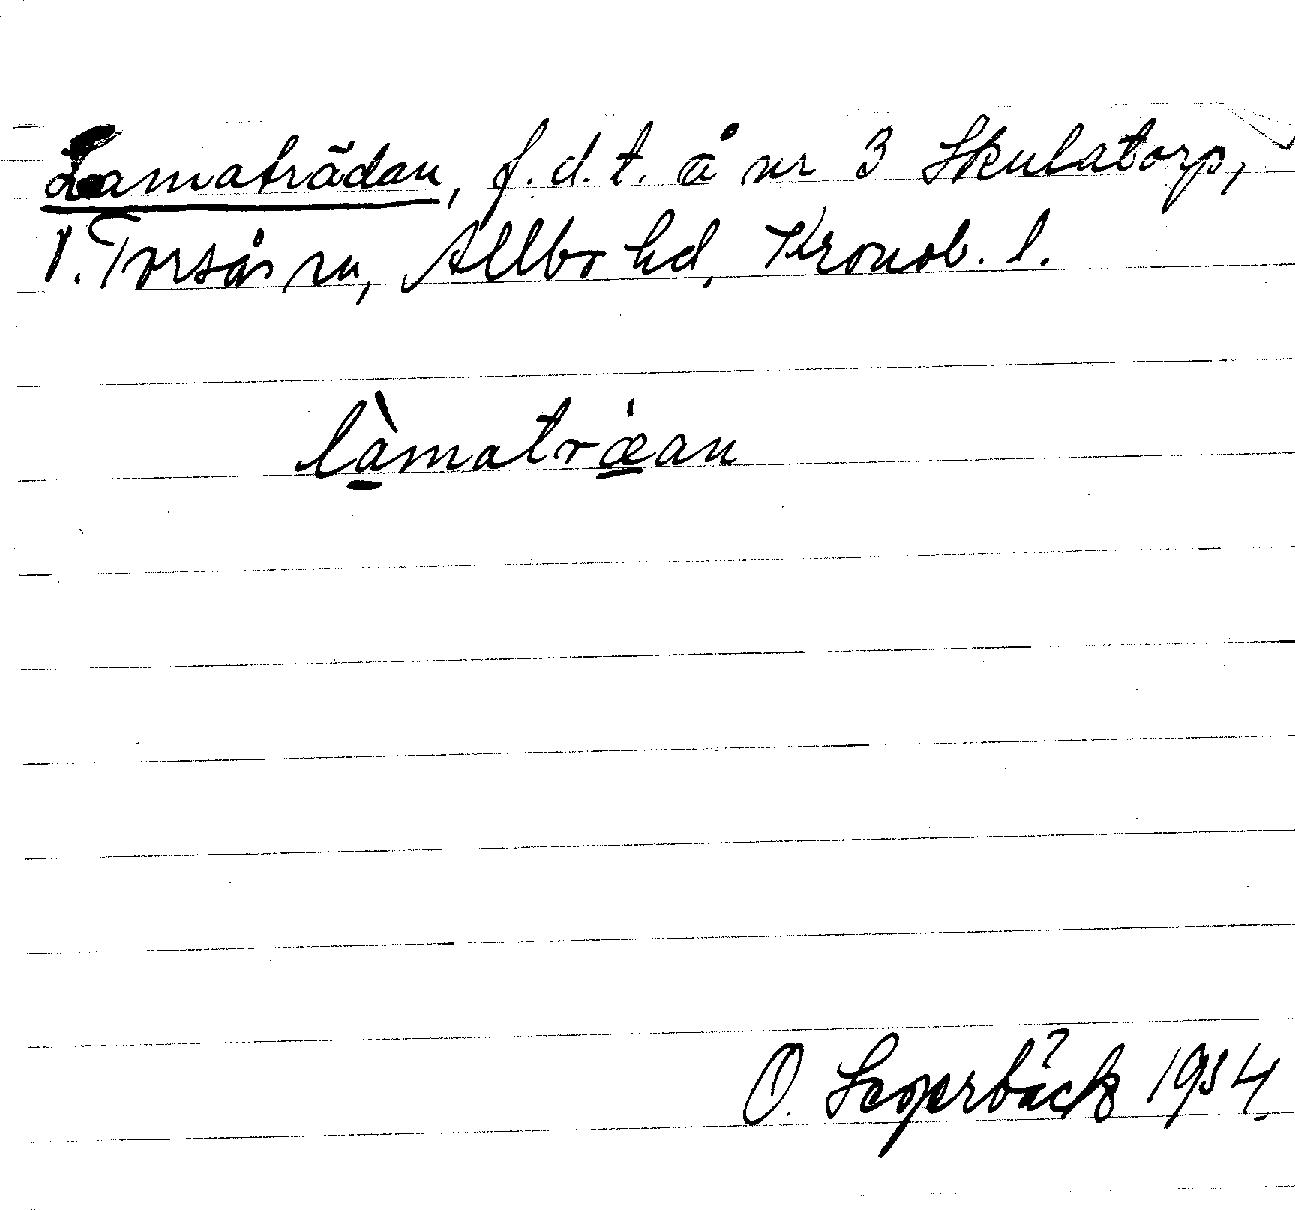 Lamaträdan, f.d.t. å nr 3 Skulatorp,
V. Torsås sn, Allbo hd, Kronob. l.
làmatræan
O. 1954.